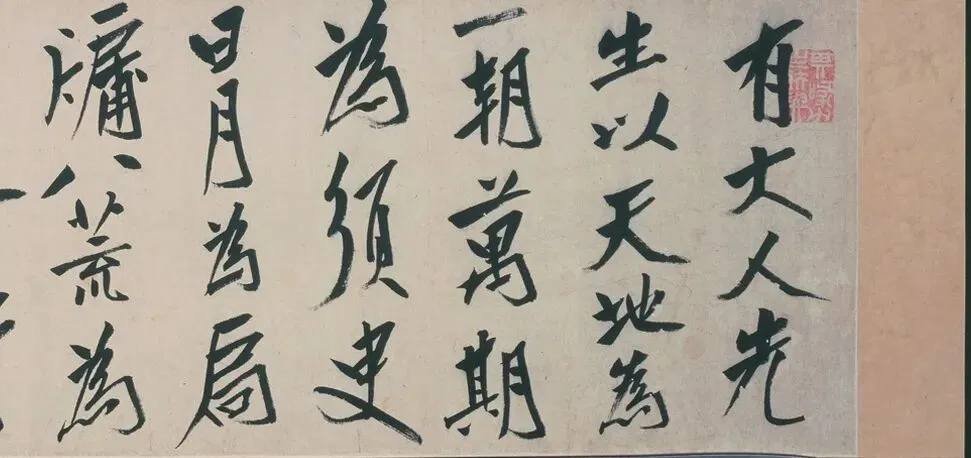 有大人先
生以天地為
一朝萬期
為須臾
日月為扃
牖八荒為